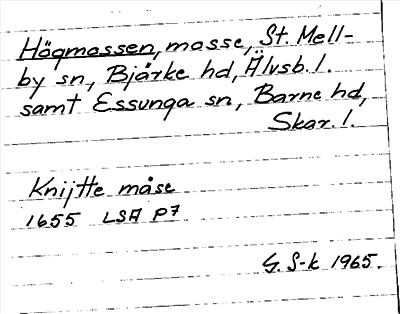 Högmossen, mosse, St. Mell-
by sn, Bjärke hd, Älvsb. l.
samt Essunga sn, Barne hd,
Skar. l.
Knijtte måse
1655 LSA P7
G. S-k 1965.